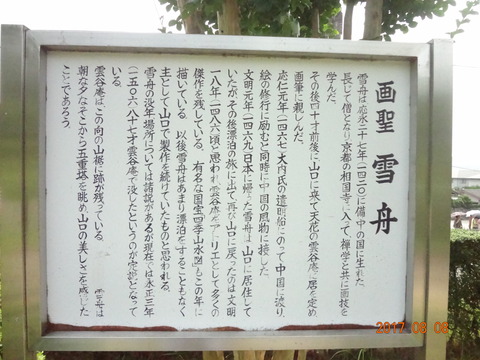 画聖 雪舟
雪舟は応永二十七年(一四二〇)に備中の国に生れた。
長じて僧となり、京都の相国寺に入って、禅学と共に画技を
学んだ。
その後四十才前後に山口に来て天花の雲谷庵に居を定め
画筆に親しんだ。
応仁元年(一四六七)大内氏の遣明船にのって中国に渡り、
絵の修行に励むと同時に中国の風物に接した。
文明元年(一四六九)日本に帰った雪舟は、山口に居住して
いたがその後漂泊の旅に出て、再び山口に戻ったのは文明
一八年(一四八六)頃と思われ雲谷庵をアトリエとして多くの
傑作を残している。有名な国宝四季山水図もこの年に
描いている。以後雪舟はあまり漂泊をすることもなく
主として山口で製作を続けていたものと思われる。
雪舟の没年場所については諸説があるが現在では永正三年
(一五〇六)八十七才雲谷庵で没したというのが定説となって
いる。
雲谷庵はこの向の山裾に跡が残っている。 雪舟は
朝な夕なそこから五重塔を眺め、山口の美しさを感じた
ことであろう。
2017.08.08